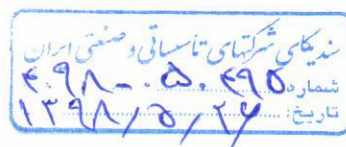 سندیکای شرکتهای تأسیساتی و صنعتی ایران
شماره: ۴۰۹۸-۰۵۰۴۹۵
تاریخ: ۱۳۹۸/۵/۲۶